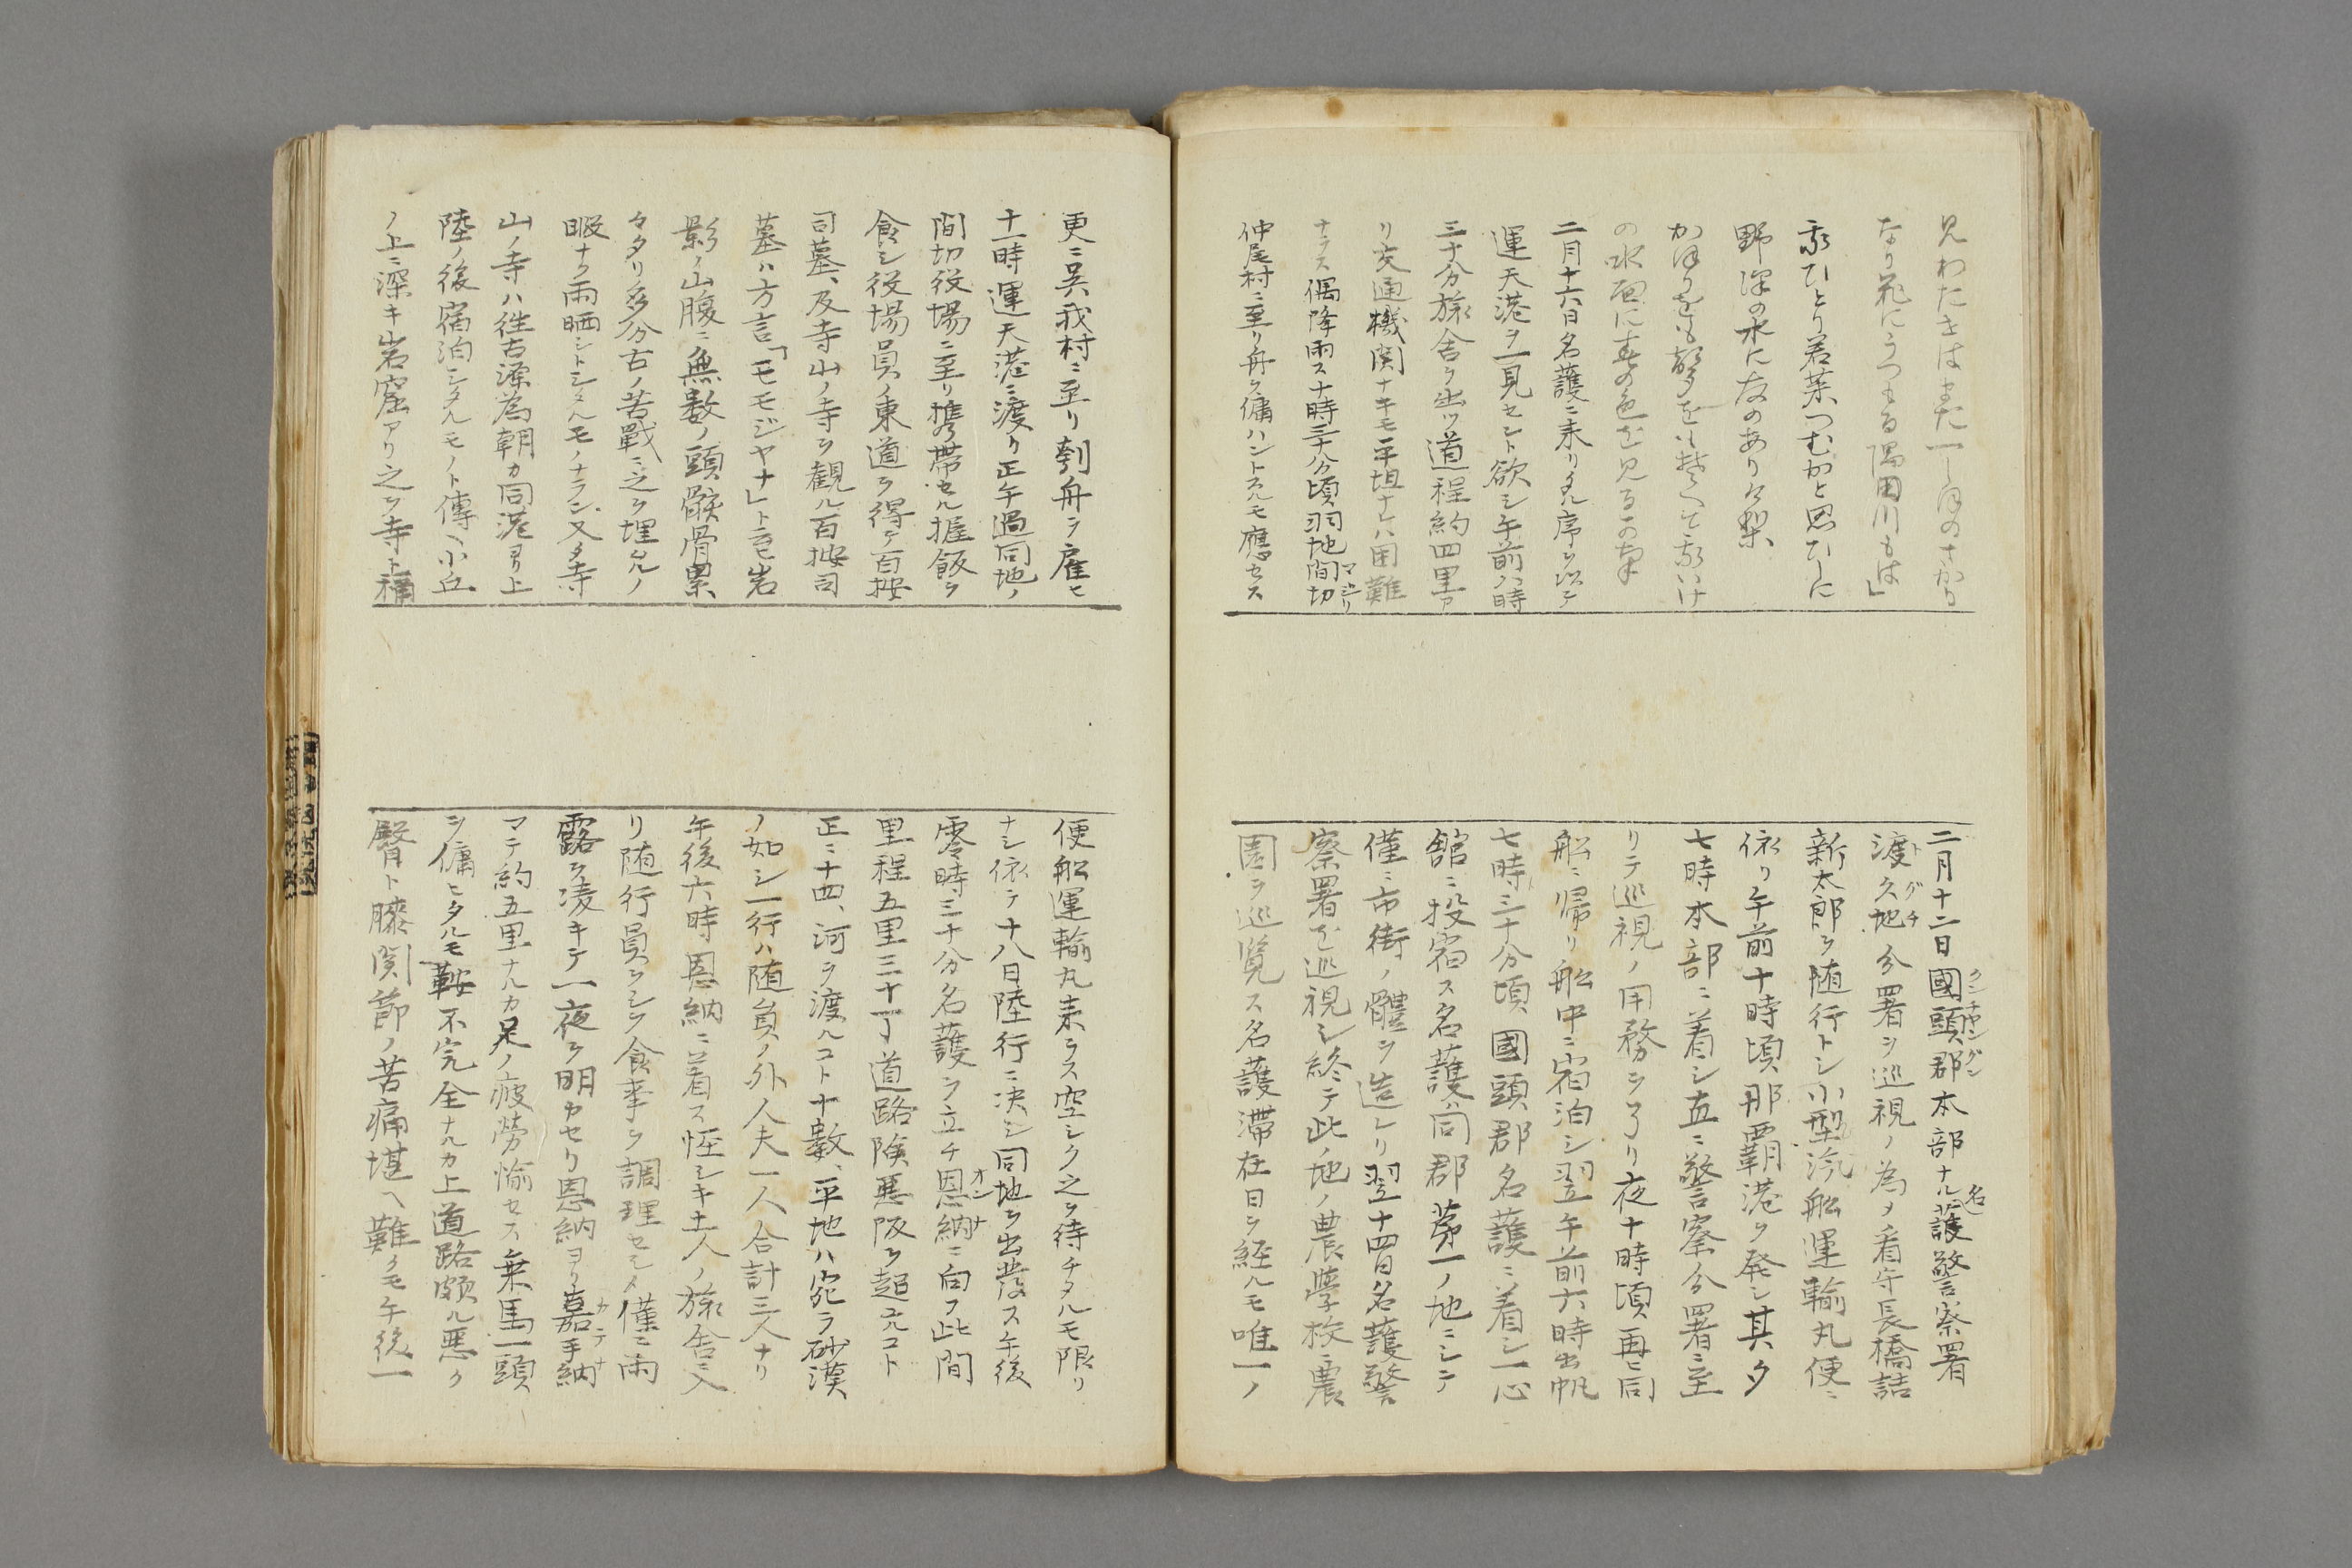 見わたせはまた一しほのさかり
なり花にうつもる隅田川もは」
我ひとり若菜つむかと思ひしに
野澤の水に友のありけ梨、
かほりをも
の水面に春の色を見る
二月十六日名護ニ来リタル序ヲ以テ
運天港ヲ一見セント欲シ午前八時
三十分旅舎ヲ出ツ道程約四里ア
リ交通機関ナキモ平坦ナレハ困難
ナラス偶降雨ス十時三十分頃羽地間切
マジリ
仲尾村ニ至リ舟ヲ傭ハントスルモ應セス
更ニ呉我村ニ至リ刳舟ヲ雇ヒ
十一時運天港ニ渡リ正午過同地ノ
間切役場ニ至リ携帯セル握飯ヲ
食シ役場員ノ東道ヲ得テ百按
司墓、及寺山ノ寺ヲ観ル百按司
墓ハ方言「モモジヤナ」ト云ヒ岩
影ノ山腹ニ無数ノ頭骸骨累
々タリ多分古ノ苦戰ニ之ヲ埋ルノ
暇ナク雨晒シトシタルモノナラン又タ寺
山ノ寺ハ往古源為朝カ同港ヨリ上
陸ノ後宿泊シタルモノト傳ヘ小丘
ノ上ニ深キ岩窟アリ之ヲ寺ト稱
二月十二日國頭郡本部ナル名護警察署
クンチヤングン
渡久地分署ヲ巡視ノ為メ看守長橋詰
トグチ
新太郎ヲ随行トシ小型汽船運輸丸便ニ
依リ午前十時頃那覇港ヲ発シ其夕
七時本部ニ着シ直ニ警察分署ニ至
リテ巡視ノ用務ヲ了リ夜十時頃再ヒ同
船ニ帰リ船中ニ宿泊シ翌午前六時出帆
七時三十分頃國頭郡名護ニ着シ一心
舘ニ投宿ス名護ハ同郡第一ノ地ニシテ
僅ニ市街ノ體ヲ造レリ翌十四日名護警
察署を巡視シ終テ此ノ地ノ農學校ニ農
園ヲ巡覧ス名護滞在日ヲ経ルモ唯一ノ
便船運輸丸来ラス空シク之ヲ待チタルモ限リ
ナシ依テ十八日陸行ニ決シ同地ヲ出發ス午後
零時三十分名護ヲ立チ恩納ニ向フ此間
オンナ
里程五里三十一丁道路険悪阪ヲ超ユルコト
正ニ十四、河ヲ渡ルコト十數、平地ハ宛ラ砂漠
ノ如シ一行ハ随員ノ外人夫一人合計三人ナリ
午後六時恩納ニ着ス怪シキ土人ノ旅舎ニ入
リ随行員ヲシテ食事ヲ調理セシメ僅ニ雨
露ヲ凌キテ一夜ヲ明カセリ恩納ヨリ嘉手納
カテナ
マテ約五里ナルカ足ノ疲労愉セス乗馬一頭
ヲ傭ヒタルモ鞍不完全ナルカ上道路頗ル悪ク
臀ト膝関節ノ苦痛堪ヘ難クモ午後一